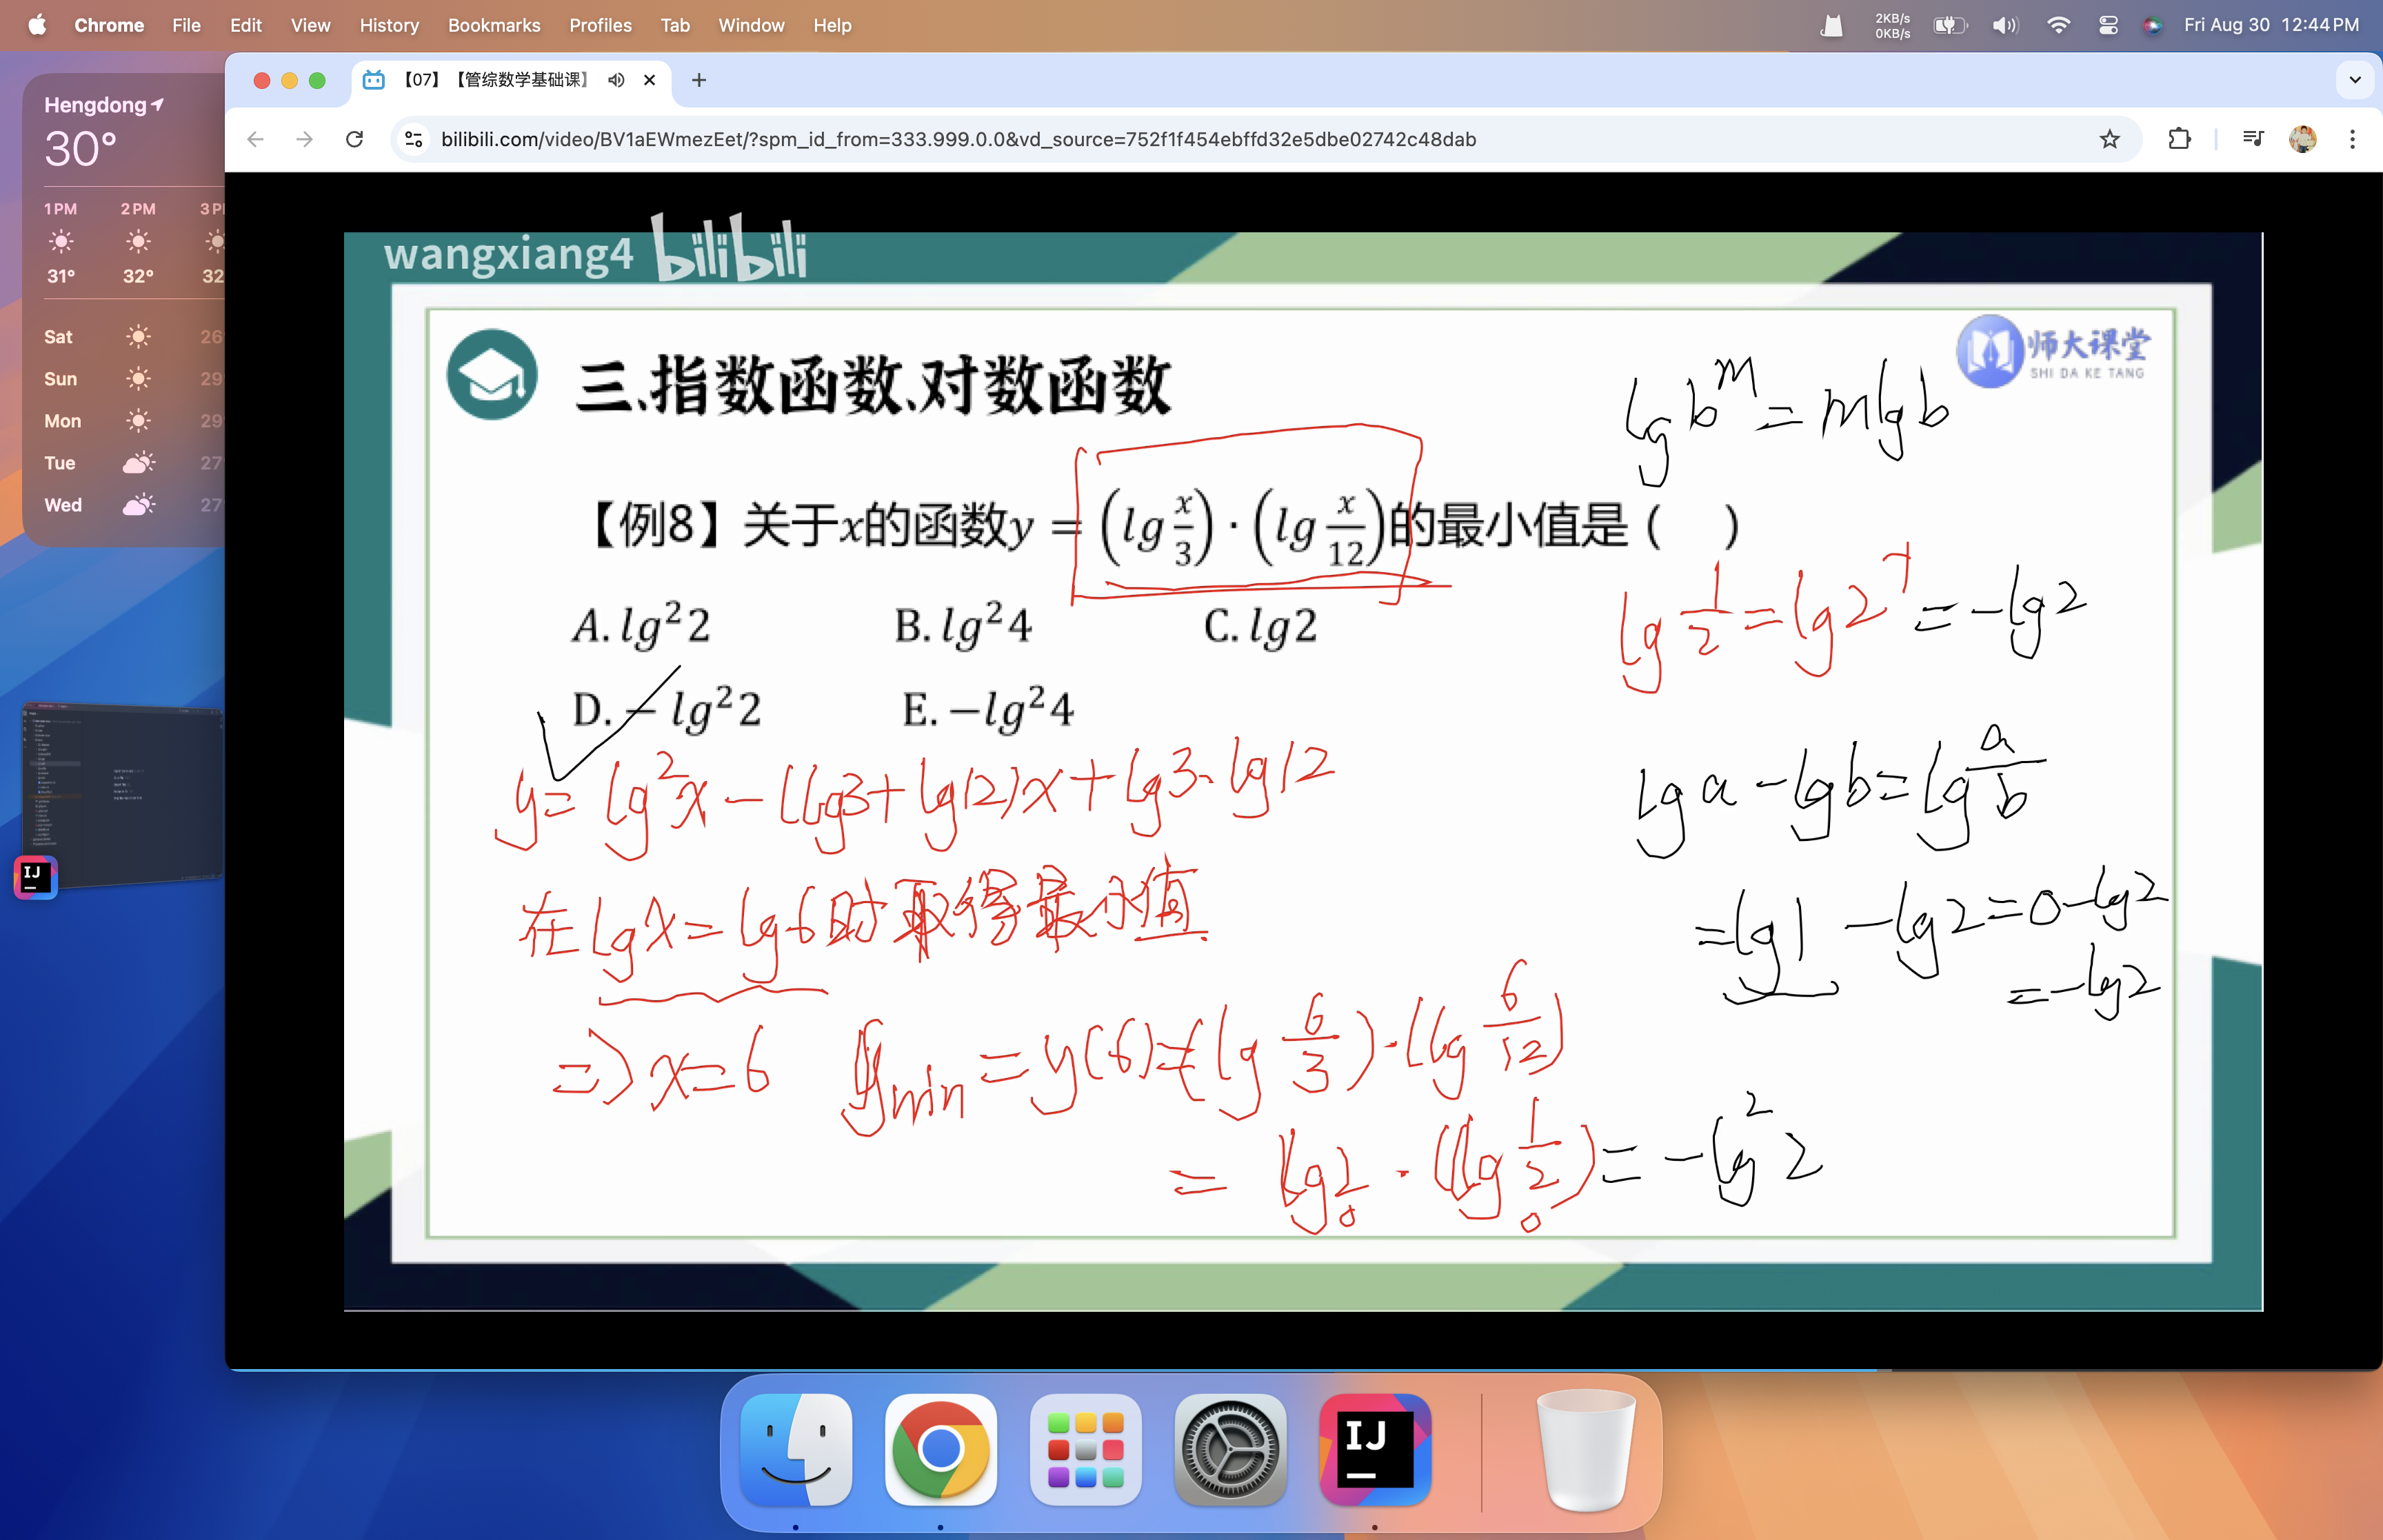 Chrome File Edit View History Bookmarks Profiles Tab Window Help
2KB/s
0KB/s
Fri Aug 30 12:44 PM
Hengdong
30°
1 PM 2 PM
31° 32°
Sat
Sun
Mon
Tue
Wed
【07】【管综数学基础课】
bilibili.com/video/BV1aEWmezEet/?spm_id_from=333.999.0.0&vd_source=752f1f454ebffd32e5dbe02742c48dab
wangxiang4 bilibili
师大课堂
SHI DA KE TANG
三、指数函数、对数函数
lg b^m = m lg b
【例8】关于x的函数y = (lg x/3)·(lg x/12)的最小值是( )
A. lg²2 B. lg²4 C. lg2
lg 1/2 = lg 2⁻¹ = -lg2
D. -lg²2 E. -lg²4
y = lg²x - (lg3 + lg12)x + lg3·lg12
lg a - lg b = lg a/b
在lgx = lg6时取得最小值
= lg1 - lg2 = 0 - lg2
= -lg2
⇒ x = 6 y min = y(6) = (lg 6/3)·(lg 6/12)
= lg2·(lg 1/2) = -lg²2
IJ
IJ